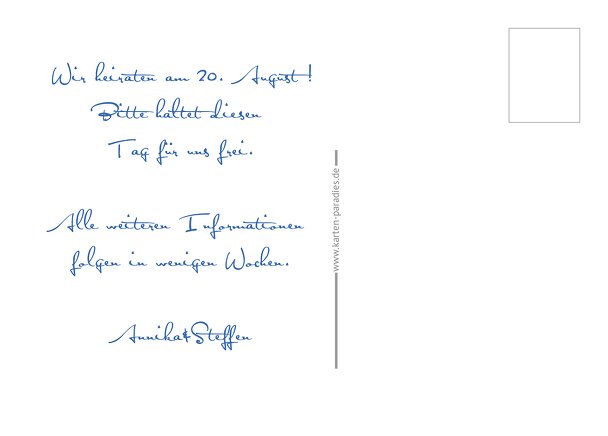 Wir heiraten am 20. August!
Bitte haltet diesen
Tag für uns frei.
Alle weiteren Informationen
folgen in wenigen Wochen.
Annika&Steffen
www.karten-paradies.de